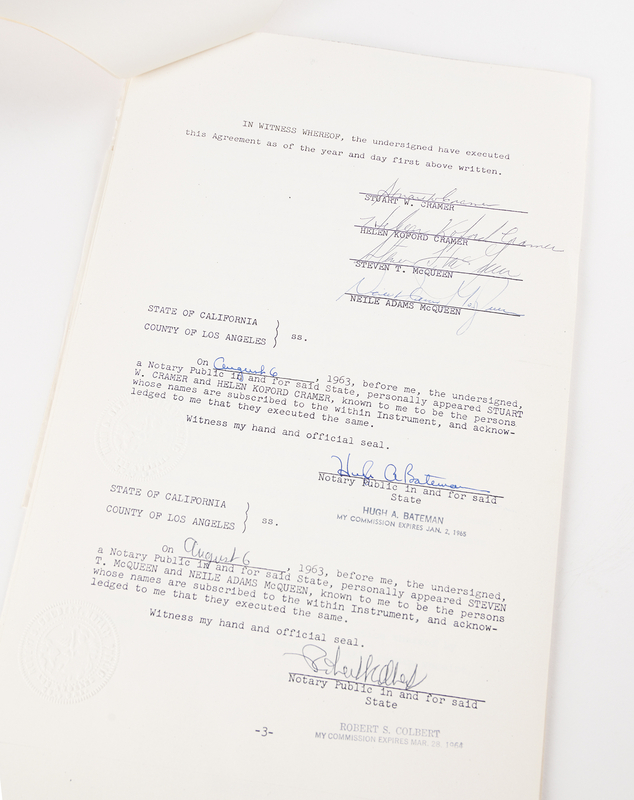 IN WITNESS WHEREOF, the undersigned have executed
this Agreement as of the year and day first above written.
STUART W. CRAMER
Helen Koford Cramer
HELEN KOFORD CRAMER
STEVEN T. McQUEEN
NEILE ADAMS McQUEEN
STATE OF CALIFORNIA
COUNTY OF LOS ANGELES } ss.
On August 6, 1963, before me, the undersigned,
a Notary Public in and for said State, personally appeared STUART
W. CRAMER and HELEN KOFORD CRAMER, known to me to be the persons
whose names are subscribed to the within Instrument, and acknow-
ledged to me that they executed the same.
Witness my hand and official seal.
Hugh A Bateman
Notary Public in and for said
State
HUGH A. BATEMAN
MY COMMISSION EXPIRES JAN. 2, 1968
STATE OF CALIFORNIA
COUNTY OF LOS ANGELES } ss.
On August 6, 1963, before me, the undersigned,
a Notary Public in and for said State, personally appeared STEVEN
T. McQUEEN and NEILE ADAMS McQUEEN, known to me to be the persons
whose names are subscribed to the within Instrument, and acknow-
ledged to me that they executed the same.
Witness my hand and official seal.
Notary Public in and for said
State
ROBERT S. COLBERT
MY COMMISSION EXPIRES MAR. 28, 1964
-3-